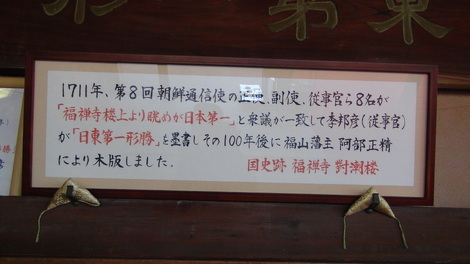 形 第 東
1711年、第8回朝鮮通信使の正使、副使、従事官ら8名が
「福禅寺楼上より眺めが日本第一」と衆議が一致して李邦彦(従事官)
が「日東第一形勝」と墨書しその100年後に福山藩主 阿部正精
により木版しました。 国史跡 福禅寺 對潮楼